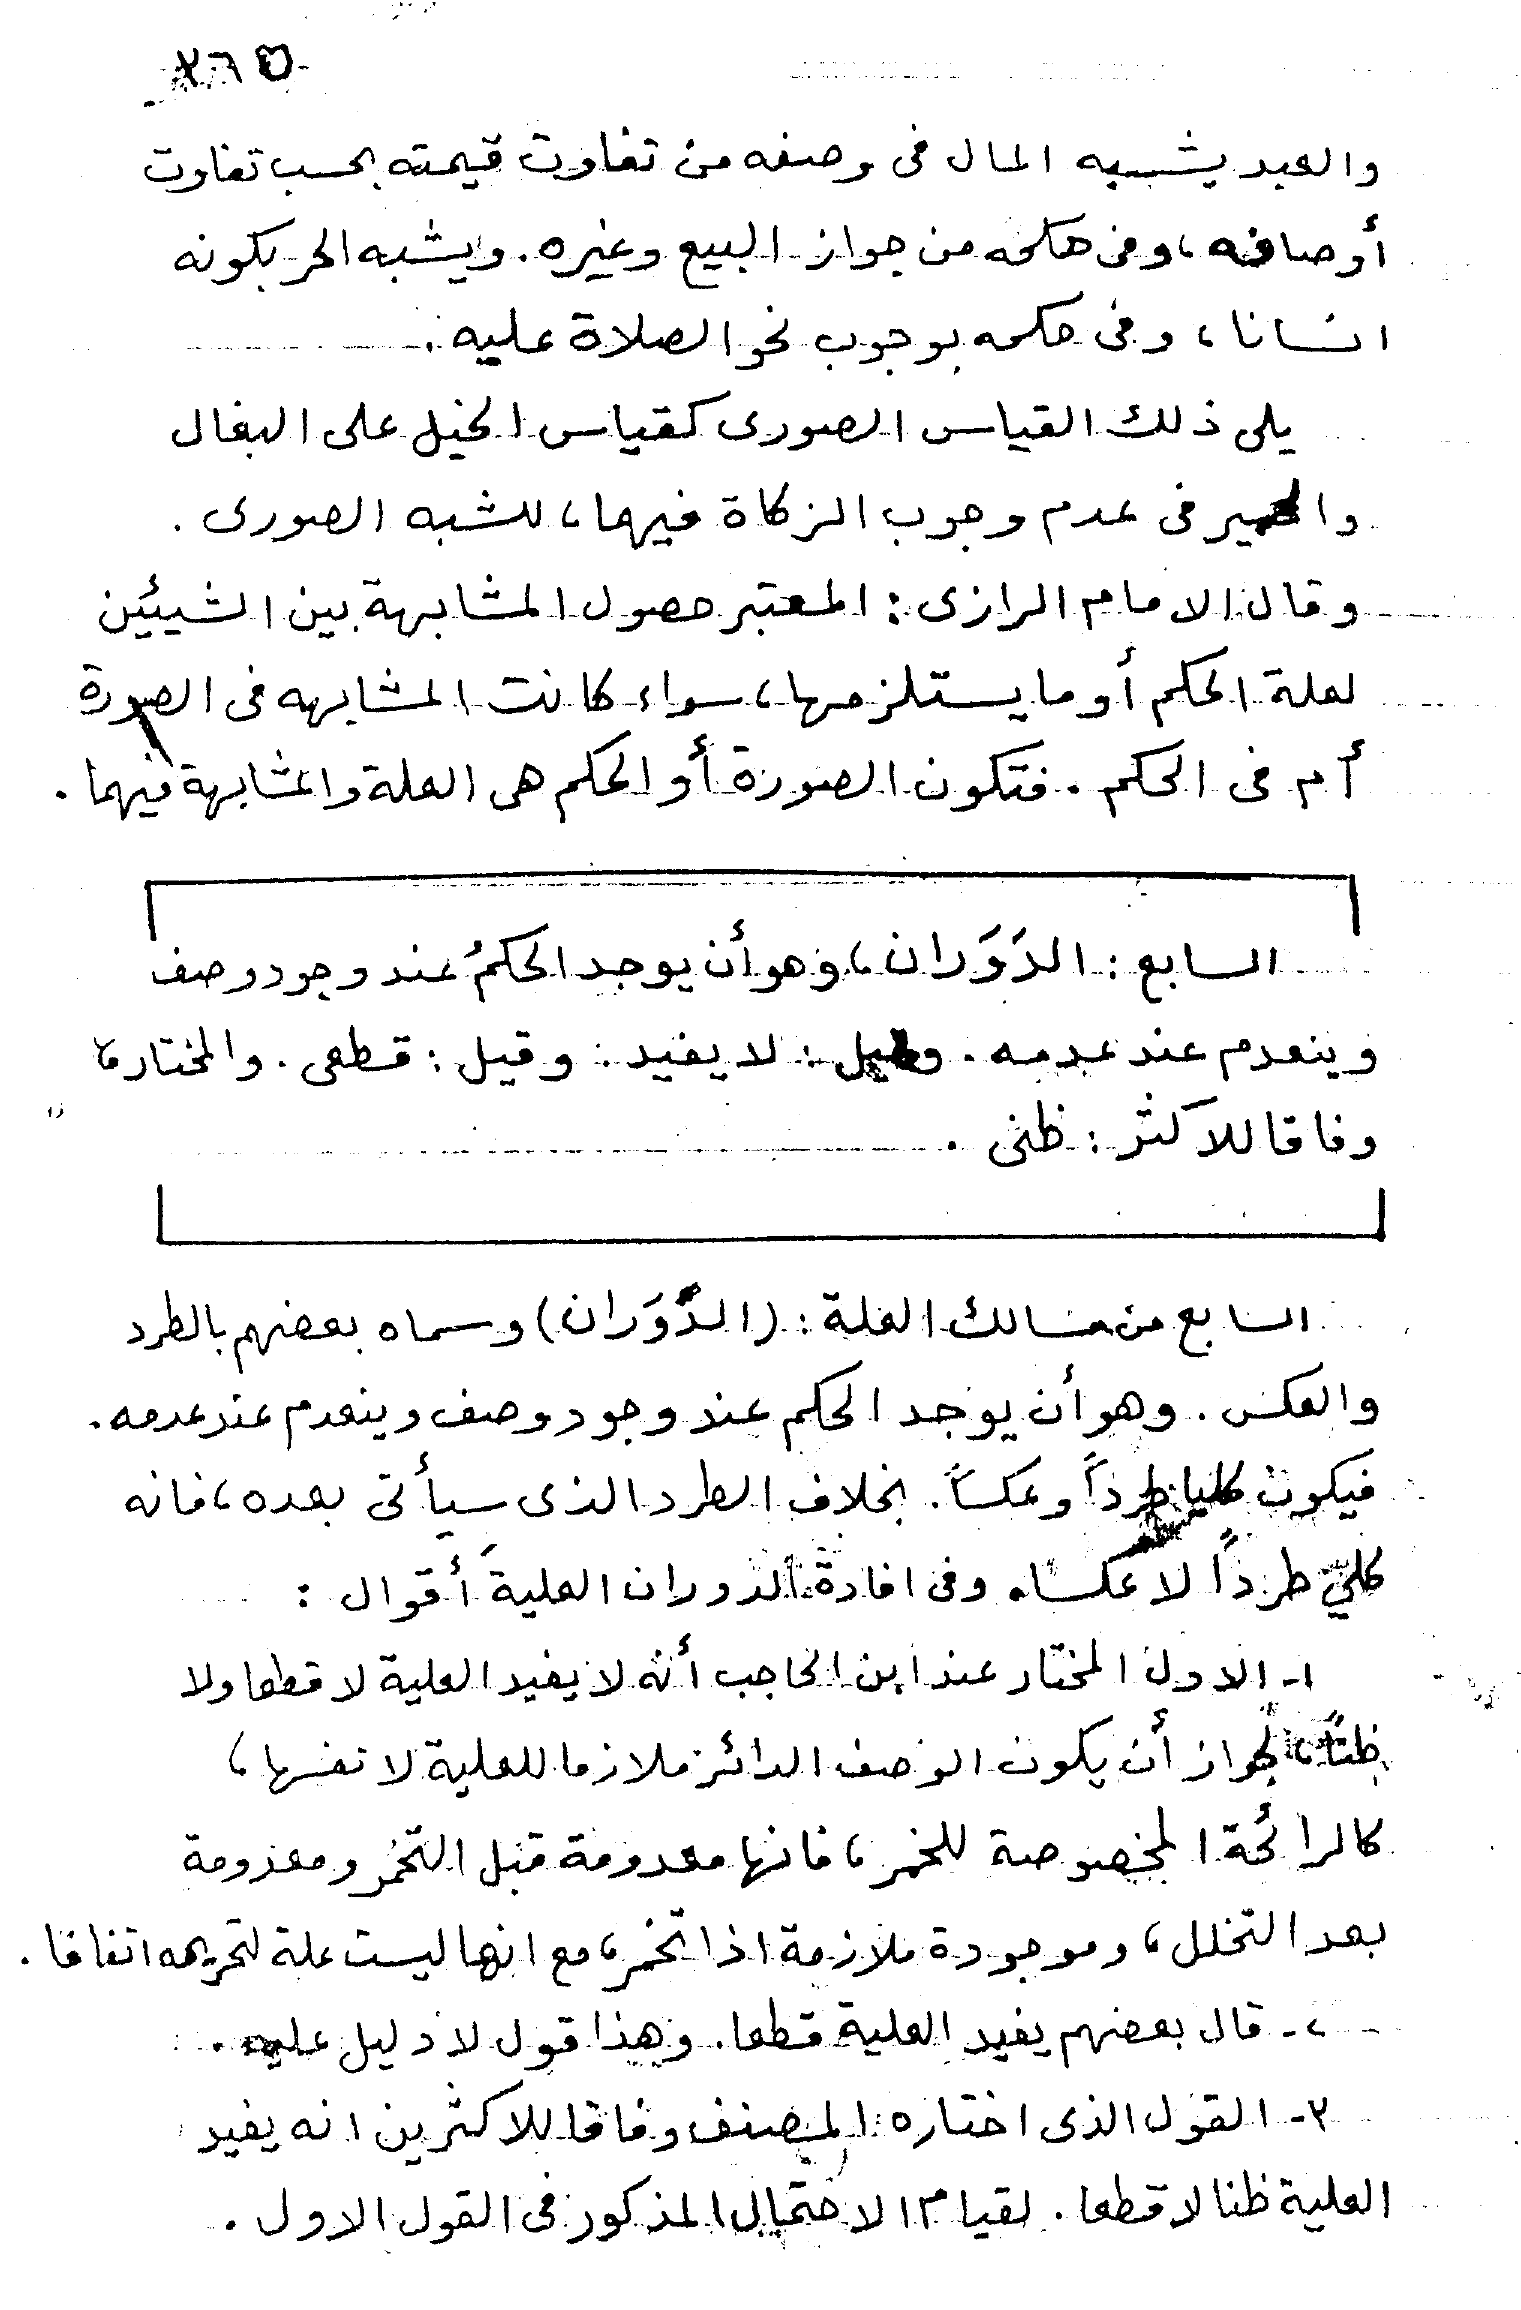 ٢٦٥
والعبد يشبه المال فى وصفه من تفاوت قيمته بحسب تفاوت
أوصافه، وفى حكمه من جواز البيع وغيره. ويشبه الحر بكونه
انسانا، وفى حكمه بوجوب نحو الصلاة عليه.
يلى ذلك القياس الصورى كقياس الخيل على البغال
والحمير فى عدم وجوب الزكاة فيها، للشبه الصورى.
وقال الامام الرازى: المعتبر حصول المشابهة بين الشيئين
لعلة الحكم أو ما يستلزمها، سواء كانت المشابهه فى الصورة
أم فى الحكم. فتكون الصورة أو الحكم هى العلة والمشابهة فيهما.
السابع: الدَوَران، وهو أن يوجد الحكمُ عند وجود وصف
وينعدم عند عدمه. وقيل: لا يفيد. وقيل: قطعى. والمختار،
وفاقا للأكثر: ظنى.
السابع من مسالك العلة: (الدَّوَران) وسماه بعضهم بالطرد
والعكس. وهو أن يوجد الحكم عند وجود وصف وينعدم عند عدمه.
فيكون كليا طرداً وعكساً. بخلاف الطرد الذى سيأتى بعده، فانه
كليّ طرداً لا عكسا. وفى افادة الدوران العليةَ أقوال:
١- الاول المختار عند ابن الحاجب أنه لا يفيد العلية لا قطعا ولا
ظنّاً، لجواز أن يكون الوصف الدائر ملازما للعلية لا نفسها،
كالرائحة المخصوصة للخمر، فانها معدومة قبل التخمر ومعدومة
بعد التخلل، وموجودة ملازمة اذا تخمر، مع انها ليست علة لتحريمه اتفاقا.
٢- قال بعضهم يفيد العلية قطعا. وهذا قول لا دليل عليه.
٣- القول الذى اختاره المصنف وفاقا للاكثرين انه يفيد
العلية ظنا لا قطعا. لقيام الاحتمال المذكور فى القول الاول.